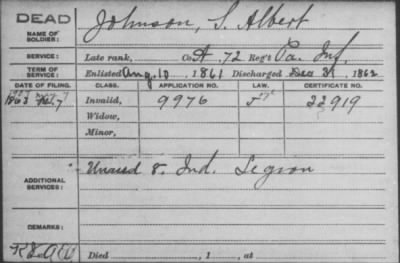 DEAD
NAME OF SOLDIER:
Johnson, S. Albert
SERVICE:
Late rank, Co. A, 72 Reg't Pa. Inf.
TERM OF SERVICE:
Enlisted Aug. 10, 1861 Discharged Dec 31, 1862
DATE OF FILING. CLASS. APPLICATION NO. LAW. CERTIFICATE NO.
1863 7 Invalid, 9976 22919
Widow,
Minor,
ADDITIONAL SERVICES:
8. Ind. Legion
REMARKS:
Died , 1 , at